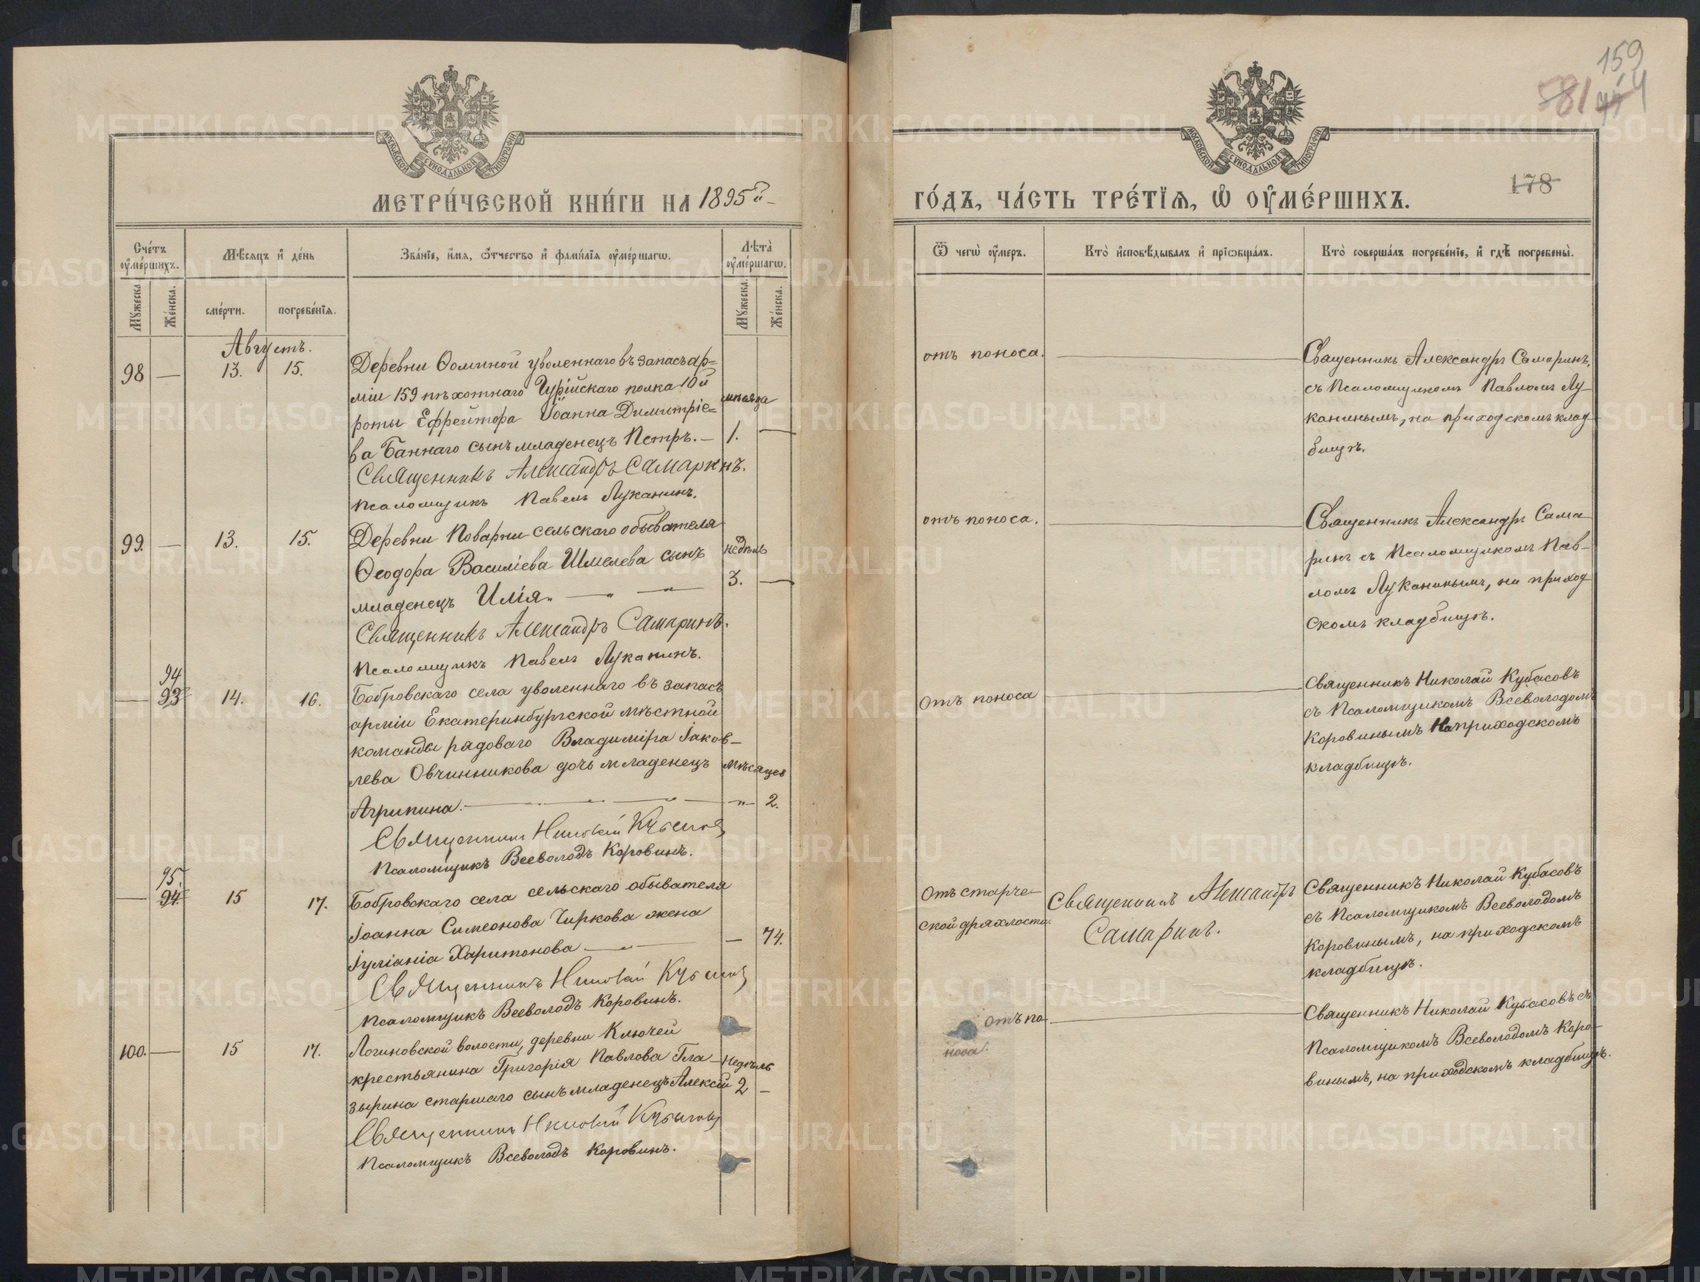 159
581
МЕТРИ́ЧЕСКОЙ КНИ́ГИ НА 1895й
ГО́ДЪ, ЧА́СТЬ ТРЕ́ТІѦ, Ѡ҆ ОУ҆МЕ́РШИХЪ.
178
Сче́тъ оу҆ме́ршихъ.
Мѣ́сѧцъ и҆ де́нь
Зва́нїе, и҆́мѧ, ѻ҆́тчество и҆ фами́лїѧ оу҆ме́ршагѡ.
Лѣ́та оу҆ме́ршагѡ.
Ѿ чегѡ̀ оу҆́меръ.
Кто̀ и҆сповѣ́дывалъ и҆ прїѡбща́лъ.
Кто̀ соверша́лъ погребе́нїе, и҆ гдѣ̀ погребены̀.
Мꙋ́жеска.
Же́нска.
сме́рти.
погребе́нїѧ.
Мꙋ́жеска.
Же́нска.
Августъ.
98 — 13. 15.
Деревни Ѳоминой уволеннаго въ запасъ ар-
міи 159 пѣхотнаго Гурійскаго полка 10й
роты Ефрейтора Іоанна Димитріе-
ва Баннаго сынъ младенецъ Петръ. — 1. —
Священникъ Александръ Самаринъ.
Псаломщикъ Павелъ Луканинъ.
отъ поноса.
Священникъ Александръ Самаринъ,
съ Псаломщикомъ Павломъ Лу-
канинымъ, на приходскомъ клад-
бищѣ.
99. — 13. 15.
Деревни Поварни сельскаго обывателя
Ѳеодора Василіева Шмелева сынъ недѣль
младенецъ Илія. 3. —
Священникъ Александръ Самаринъ.
Псаломщикъ Павелъ Луканинъ.
отъ поноса.
Священникъ Александръ Сама-
ринъ съ Псаломщикомъ Пав-
ломъ Луканинымъ, на приход-
скомъ кладбищѣ.
94
— 93 14. 16.
Бобровскаго села уволеннаго въ запасъ
арміи Екатеринбургской мѣстной
команды рядоваго Владиміра Іаков-
лева Овчинникова дочь младенецъ мѣсяцев
Агрипина. — 2.
Священникъ Николай Кубасовъ
Псаломщикъ Всеволодъ Коровинъ.
Отъ поноса
Священникъ Николай Кубасовъ
съ Псаломщикомъ Всеволодомъ
Коровинымъ на приходскомъ
кладбищѣ.
95
— 94. 15 17.
Бобровскаго села сельскаго обывателя
Іоанна Симеонова Чиркова жена
Іуліанія Харитонова — 74.
Священникъ Николай Кубасовъ
Псаломщикъ Всеволодъ Коровинъ.
Отъ старче-
ской дряхлости.
Священникъ Александръ
Самаринъ.
Священникъ Николай Кубасовъ
съ Псаломщикомъ Всеволодомъ
Коровинымъ, на приходскомъ
кладбищѣ.
100. — 15 17.
Логиновской волости, деревни Ключей
крестьянина Григорія Павлова Гла- недѣль
зырина старшаго сынъ младенецъ Алексій 2 —
Священникъ Николай Кубасовъ
Псаломщикъ Всеволодъ Коровинъ.
Отъ по-
носа.
Священникъ Николай Кубасовъ съ
Псаломщикомъ Всеволодомъ Коро-
винымъ, на приходскомъ кладбищѣ.
METRIKI.GASO-URAL.RU